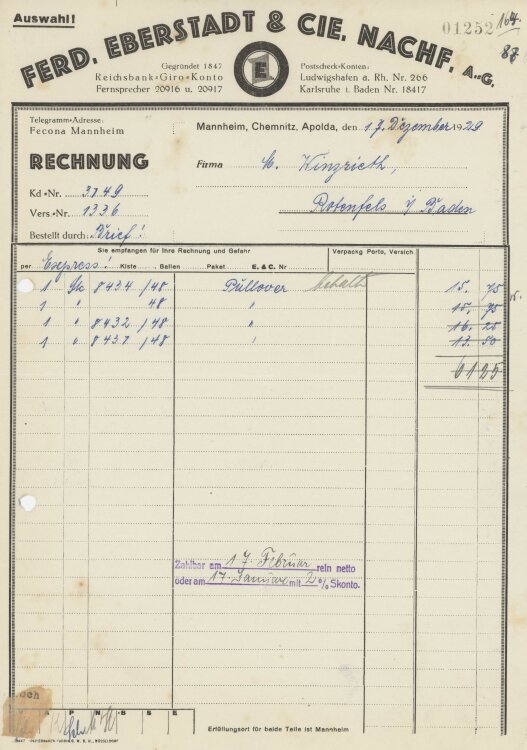 Auswahl!
01252
164
87
FERD. EBERSTADT & CIE. NACHF. A.-G.
Gegründet 1847
Reichsbank-Giro-Konto
Fernsprecher 20916 u. 20917
E
Postscheck-Konten:
Ludwigshafen a. Rh. Nr. 266
Karlsruhe i. Baden Nr. 18417
Telegramm-Adresse:
Fecona Mannheim
Mannheim, Chemnitz, Apolda, den 17. Dezember 1929
RECHNUNG
Firma M. Winzrieth,
Kd.-Nr. 3749
Vers.-Nr. 1336
Rotenfels i/ Baden
Bestellt durch: Brief!
Sie empfangen für Ihre Rechnung und Gefahr
Verpackg Porto, Versich.
per Express! Kiste Ballen Paket E. & C. Nr
1 Stk 8434 /48 Pullover behalt 15. 75
1 " 48 " 15. 75
1 " 8432 /48 " 16 25
1 " 8437 /48 " 13. 50
61 25
Zahlbar am 17. Februar rein netto
oder am 17. Januar mit 2 % Skonto.
A P N B S E
Erfüllungsort für beide Teile ist Mannheim